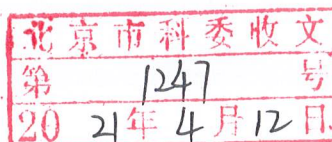 北京市科委收文
第 1247 号
20 21年 4月 12日